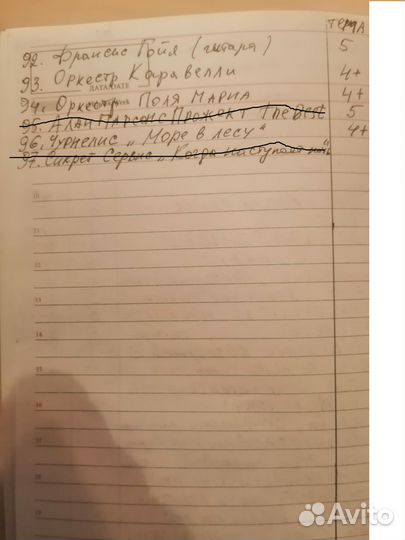 ТЕМА
92. Франсис Гойя (гитара) 5
93. Оркестр Каравелли 4+
ДАТА/DATE
94. Оркестр Поля Мариа 4+
95. Алан Парсонс Прожект The Best 5
96. Чурленис „Море в лесу“ 4+
97. Сикрет Сервис „Когда наступала ночь“
10
11
12
13
14
15
16
17
18
19
20
Avito